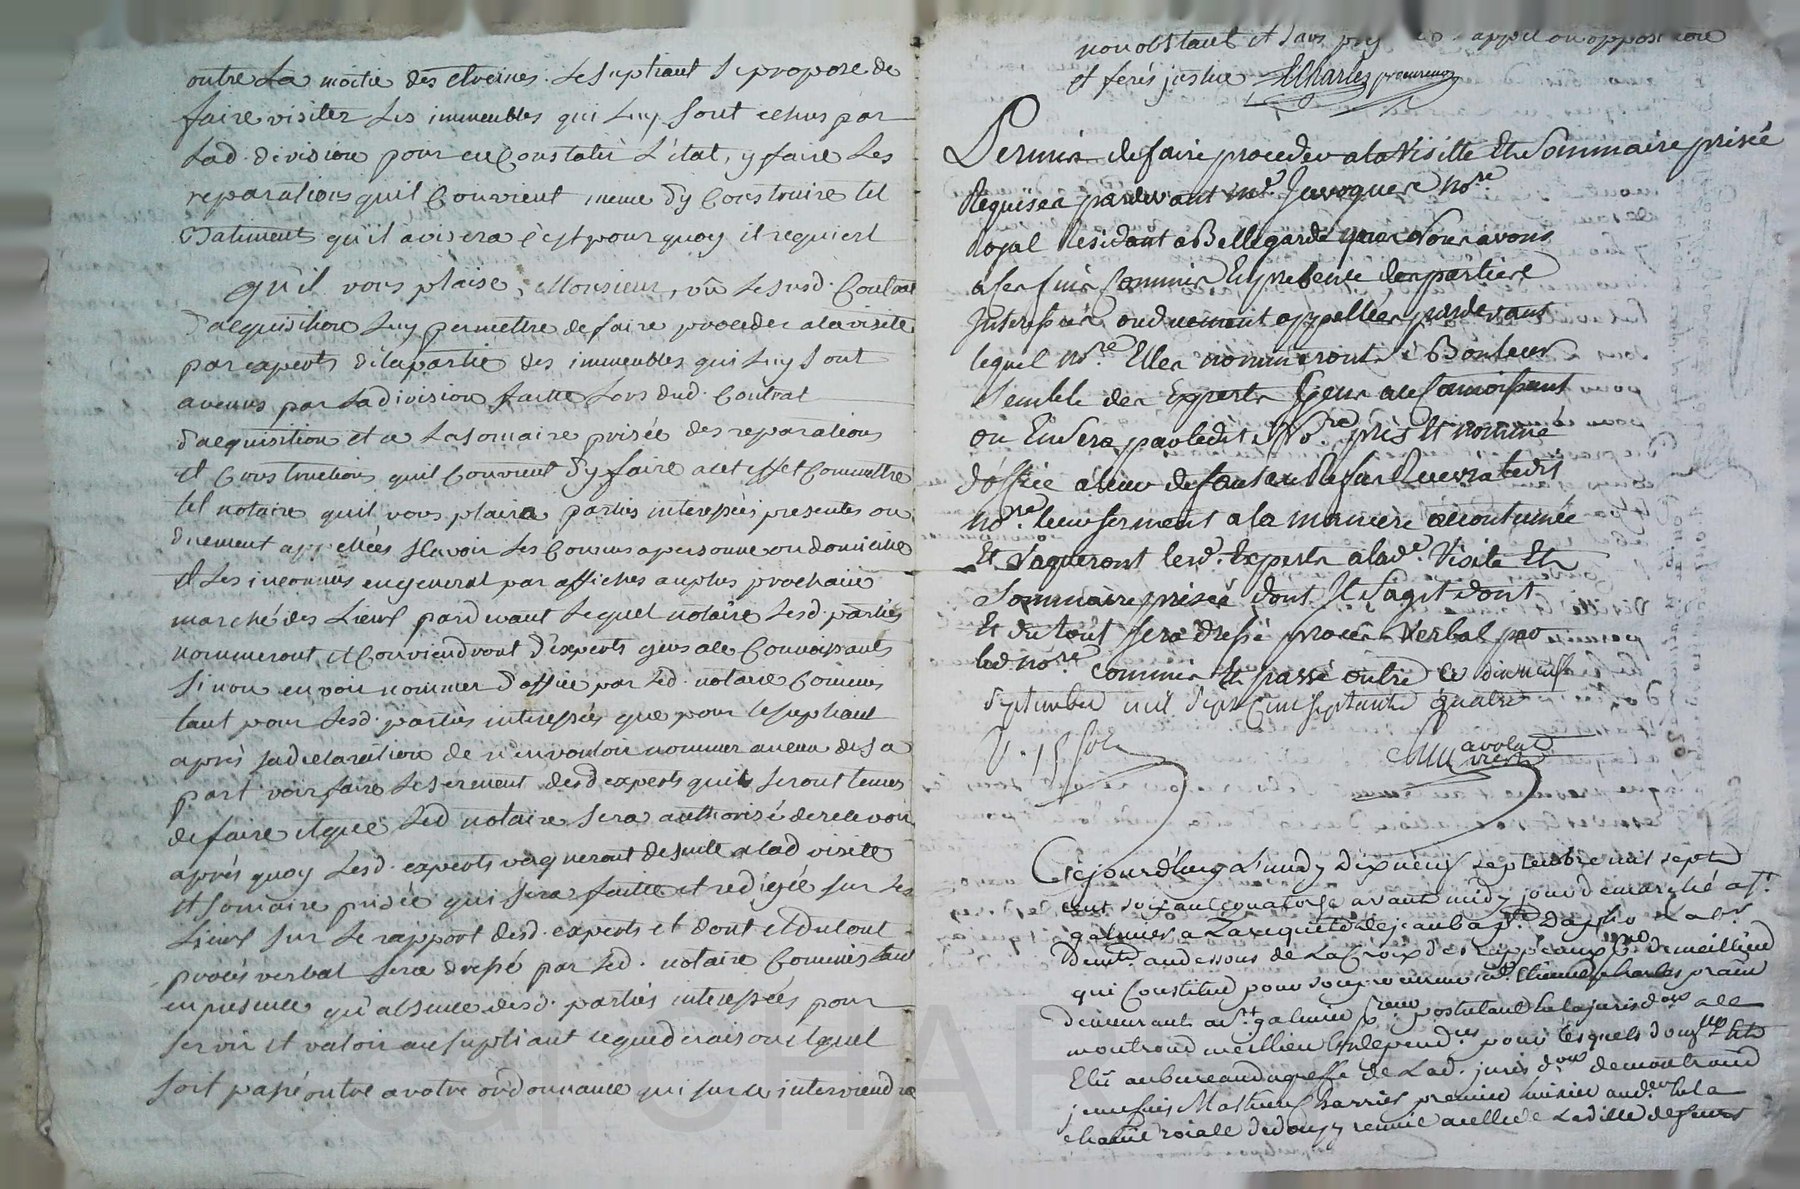 outre La moitié des etreines. Le supliant se propose de
faire visiter Les immeubles qui Luy sont echus par
Lad. division pour en Constater L'état, y faire Les
reparations quil Convient meme d'y Construire tel
Batiment qu'il avisera c'est pourquoy il requiert
qu'il vous plaise, Monsieur, vû Le susd. Contrat
d'acquisition Luy permettre de faire proceder a la visite
par experts de la partie des immeubles qui Luy sont
avenus par La division faitte Lors dud. Contrat
d'acquisition et a La somaire prisée des reparations
et Constructions quil Convient d'y faire a cet effet Commettre
tel notaire quil vous plaira parties interessées presentes ou
duement appellées scavoir Les Connus a personne ou domicille
et Les inconnus en general par affiches au plus prochain
marché des Lieux pardevant Lequel notaire Lesd. parties
nommeront et Conviendront d'experts gens a ce Connoissants
sinon en voir nommer d'office par Led. notaire Commis
tant pour Lesd. parties interessées que pour le supliant
après sa declaration de n'en vouloir nommer aucun de sa
part voir faire Le serement desd experts quil seront tenus
de faire et que Led notaire sera authorisé de recevoir
après quoy Lesd. experts vaqueront de suite a lad visitte
et somaire prisée qui sera faitte et redigée sur Les
Lieux sur Le rapport desd. experts et dont et du tout
procès verbal sera dressé par Led. notaire Commis tant
en presence qu'absence desd. parties interessées pour
servir et valoir au supliant ce que de raison et quil
soit passé outre a votre ordonnance qui sur ce interviendra
nonobstant et sans appel ou opposition
et ferés justice Charles procureur
Permis de faire proceder a la Visitte Et Sommaire prisée
Requises pardevant me. Javogues nore.
Royal Résidant a Bellegarde que Nous avons
a ces fins Commis En présence des parties
Interessées ou duement appellées pardevant
lequel nore. Elles nommeront si Bon leur
semble des Experts gens a ce Connoissant
ou En sera par ledit Nore. pris Et nommé
d'office a leur defaut ou Refus Recevra ledit
nore. leur serment a la maniere accoutumée
Et Vaqueront lesd. Experts a lade. Visite Et
Sommaire prisée dont Il s'agit dont
Et du tout sera dressé procès Verbal par
led. nore. Commis Et passé outre ce dix neuf
Septembre mil Sept Cent septante quatre
avocat
Cejourd'huy Lundy dix neuf septembre mil sept
cent soixante quatorze avant midy jour de marché a St.
galmier a La requete de jean bapte. Labr
demt. au dessous de La Croix des Rappeaux psse. de meillieu
qui Constitue pour son procureur me. Etienne Charles prain
demeurant a St. galmier procur. postulant en la jurisdon. de
montrond meillieu Et dependces. pour lesquels domlle. est
Elû au bureau du greffe de Lad. jurisdon. de montrond
je me suis Mathieu Charries premier huisier aud. en la
chatnie roiale de donzy reunie a celle de La ville de feurs